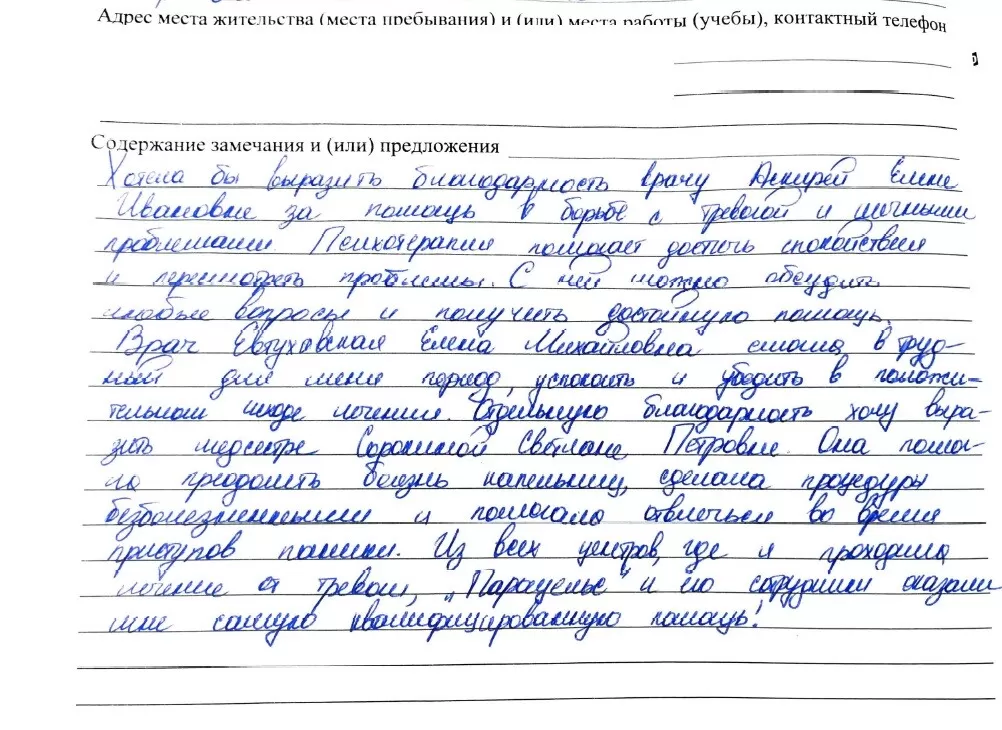 Адрес места жительства (места пребывания) и (или) места работы (учебы), контактный телефон
Содержание замечания и (или) предложения
Хотела бы выразить благодарность врачу Елене
Ивановне за помощь в борьбе с тревогой и личными
проблемами. Психотерапия помогает достичь спокойствия
и пересмотреть проблемы. С ней можно обсудить
любые вопросы и получить достойную помощь.
Врач Евтуховская Елена Михайловна смогла в труд-
ный для меня период успокоить и убедить в положи-
тельном исходе лечения. Отдельную благодарность хочу выра-
зить медсестре Сорокиной Светлане Петровне. Она помог-
ла преодолеть боязнь капельниц, сделала процедуры
безболезненными и помогала отвлечься во время
приступов паники. Из всех центров, где я проходила
лечение от тревоги, „Парацельс" и его сотрудники оказали
мне самую квалифицированную помощь!